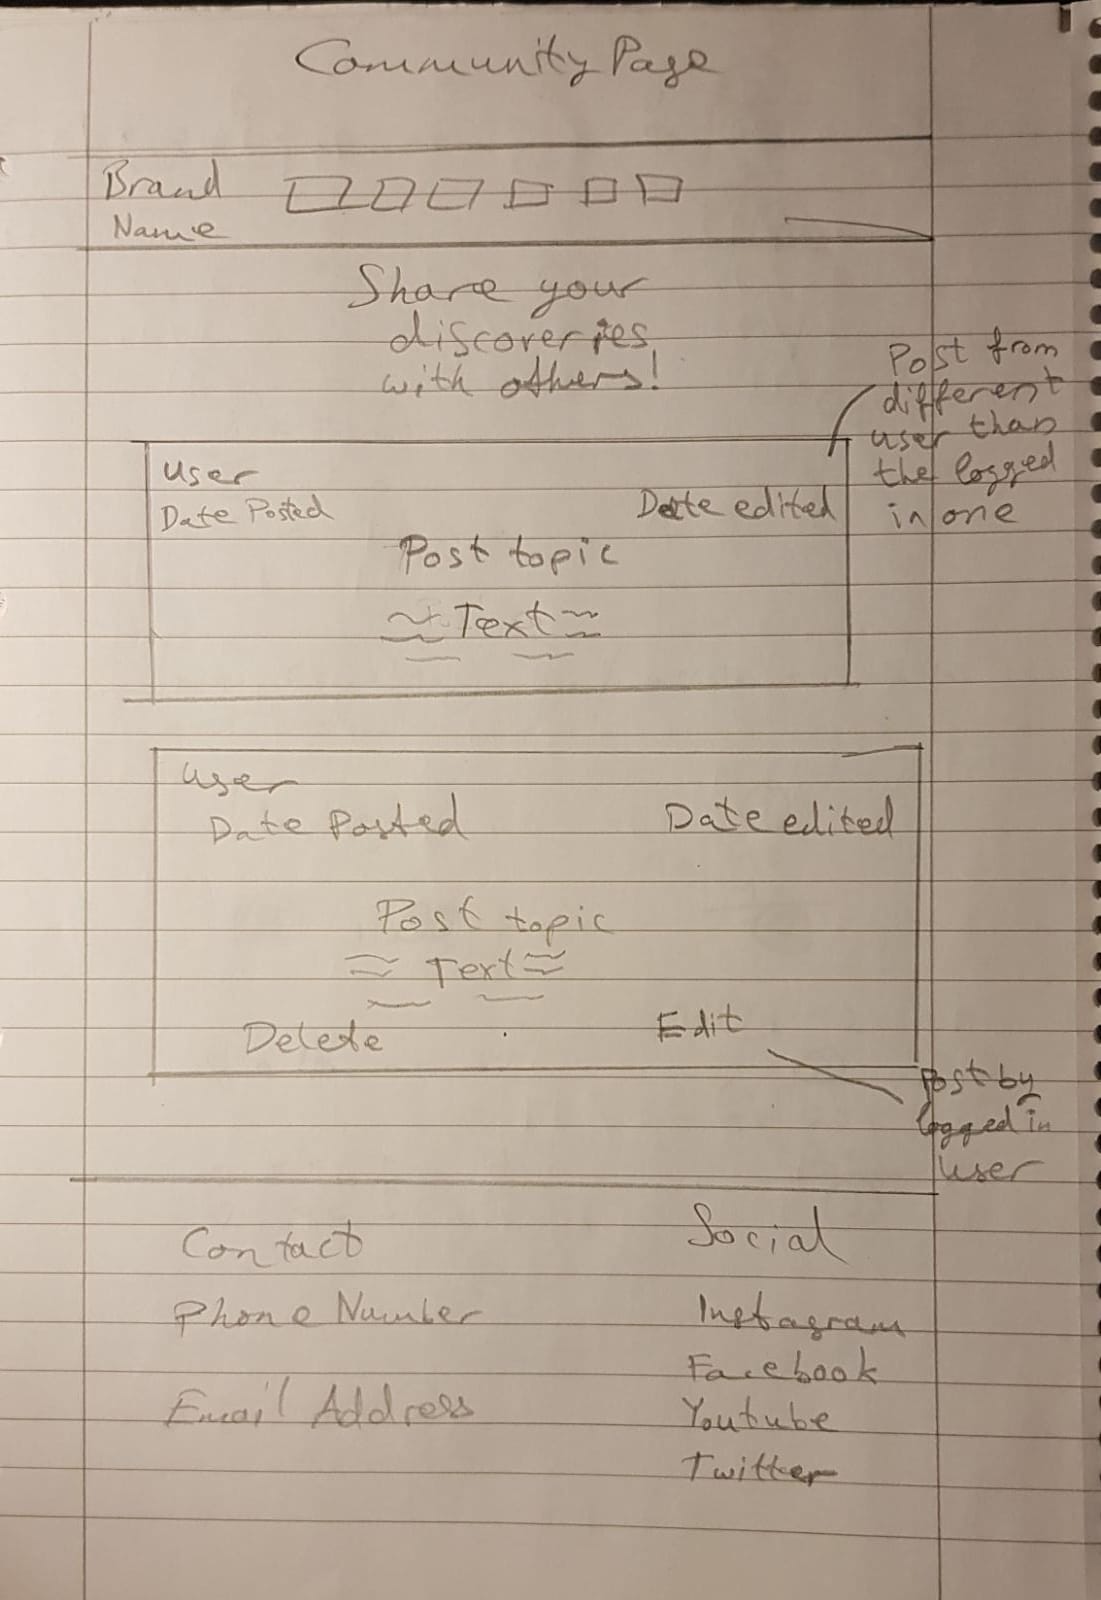 Community Page
Brand
Name
Share your
discoveries
with others!
Post from
different
user than
the logged
in one
user
Date Posted
Date edited
Post topic
Text
user
Date Posted
Date edited
Post topic
Text
Delete
Edit
Post by
logged in
user
Contact
Social
Phone Number
Instagram
Facebook
Email Address
Youtube
Twitter